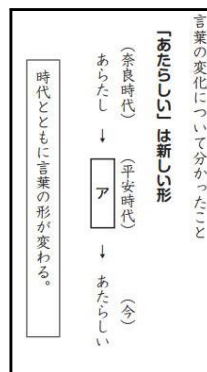 言葉の変化について分かったこと
「あたらしい」は新しい形
（奈良時代）（平安時代）（今）
あらたし → ア → あたらしい
時代とともに言葉の形が変わる。